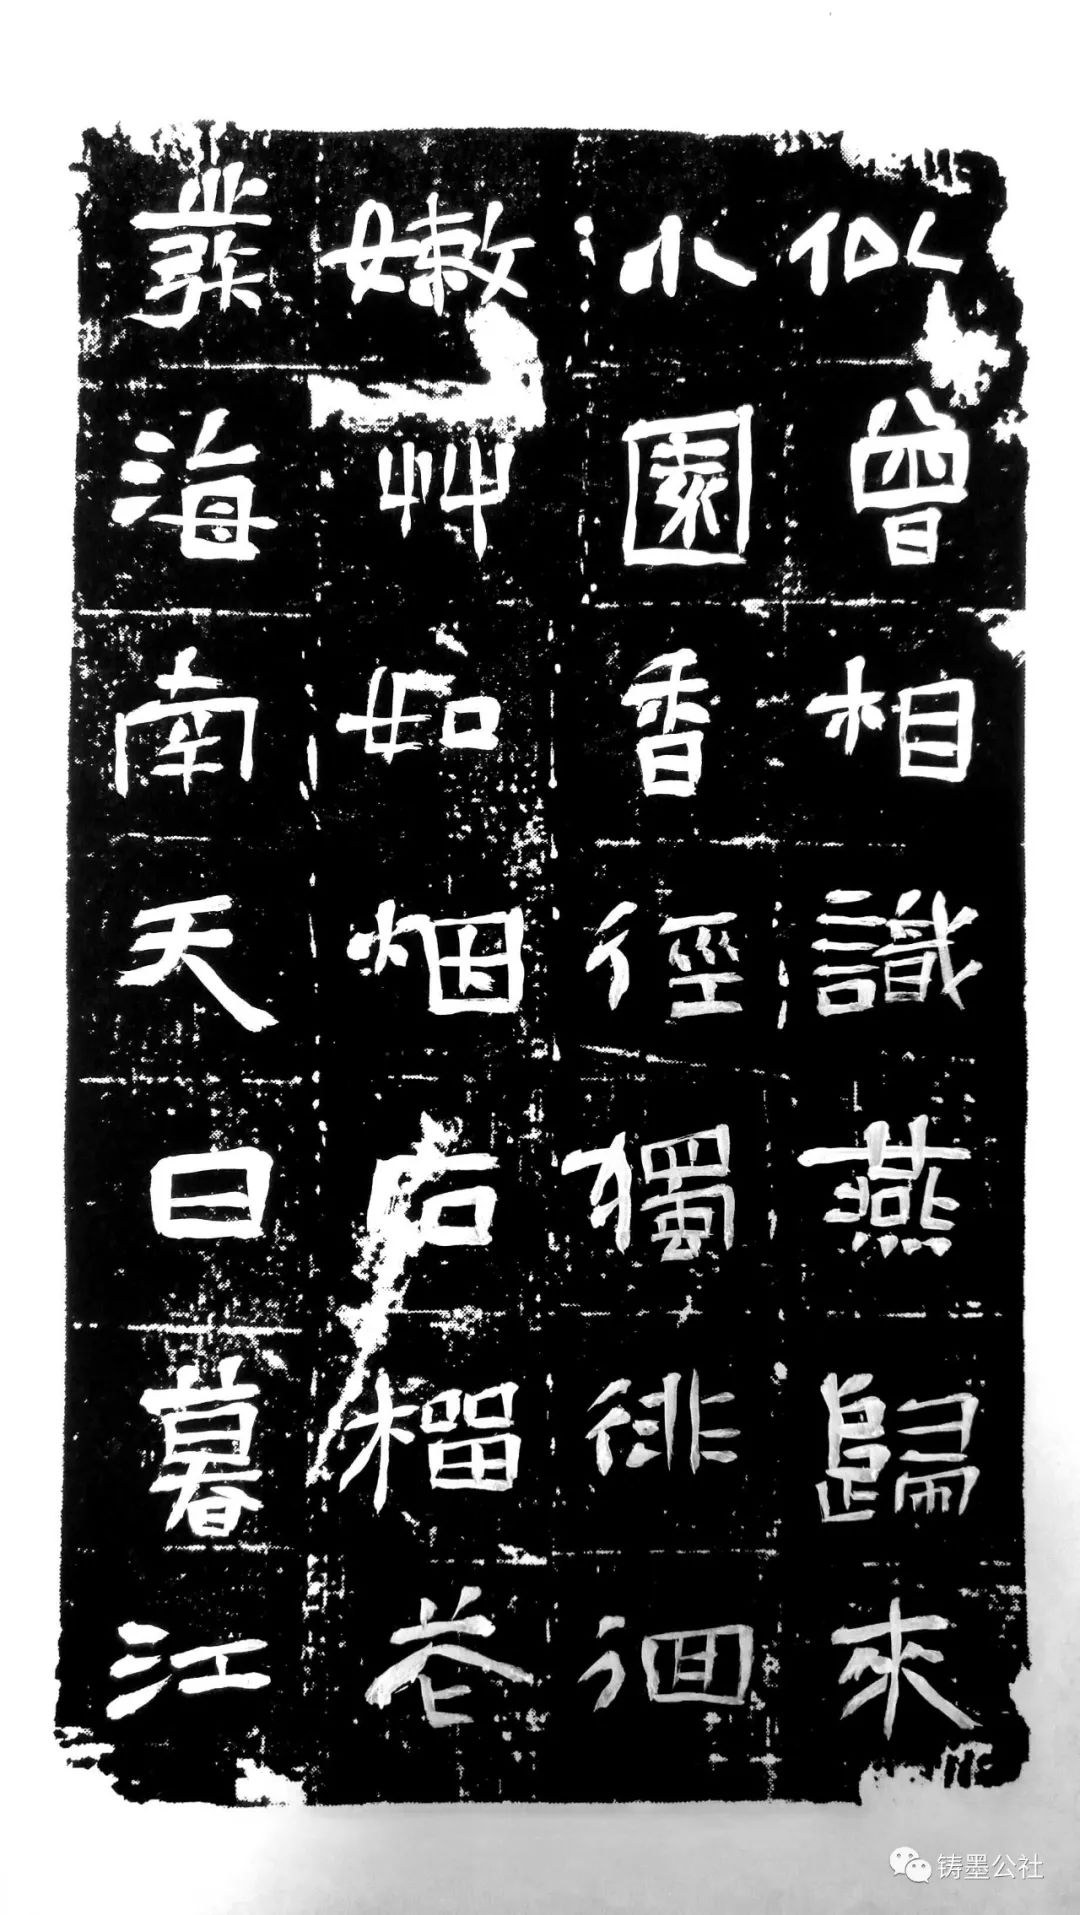 似曾相識燕歸來
小園香徑獨徘徊
嫩艸如烟石榴花
發海南天日暮江
铸墨公社